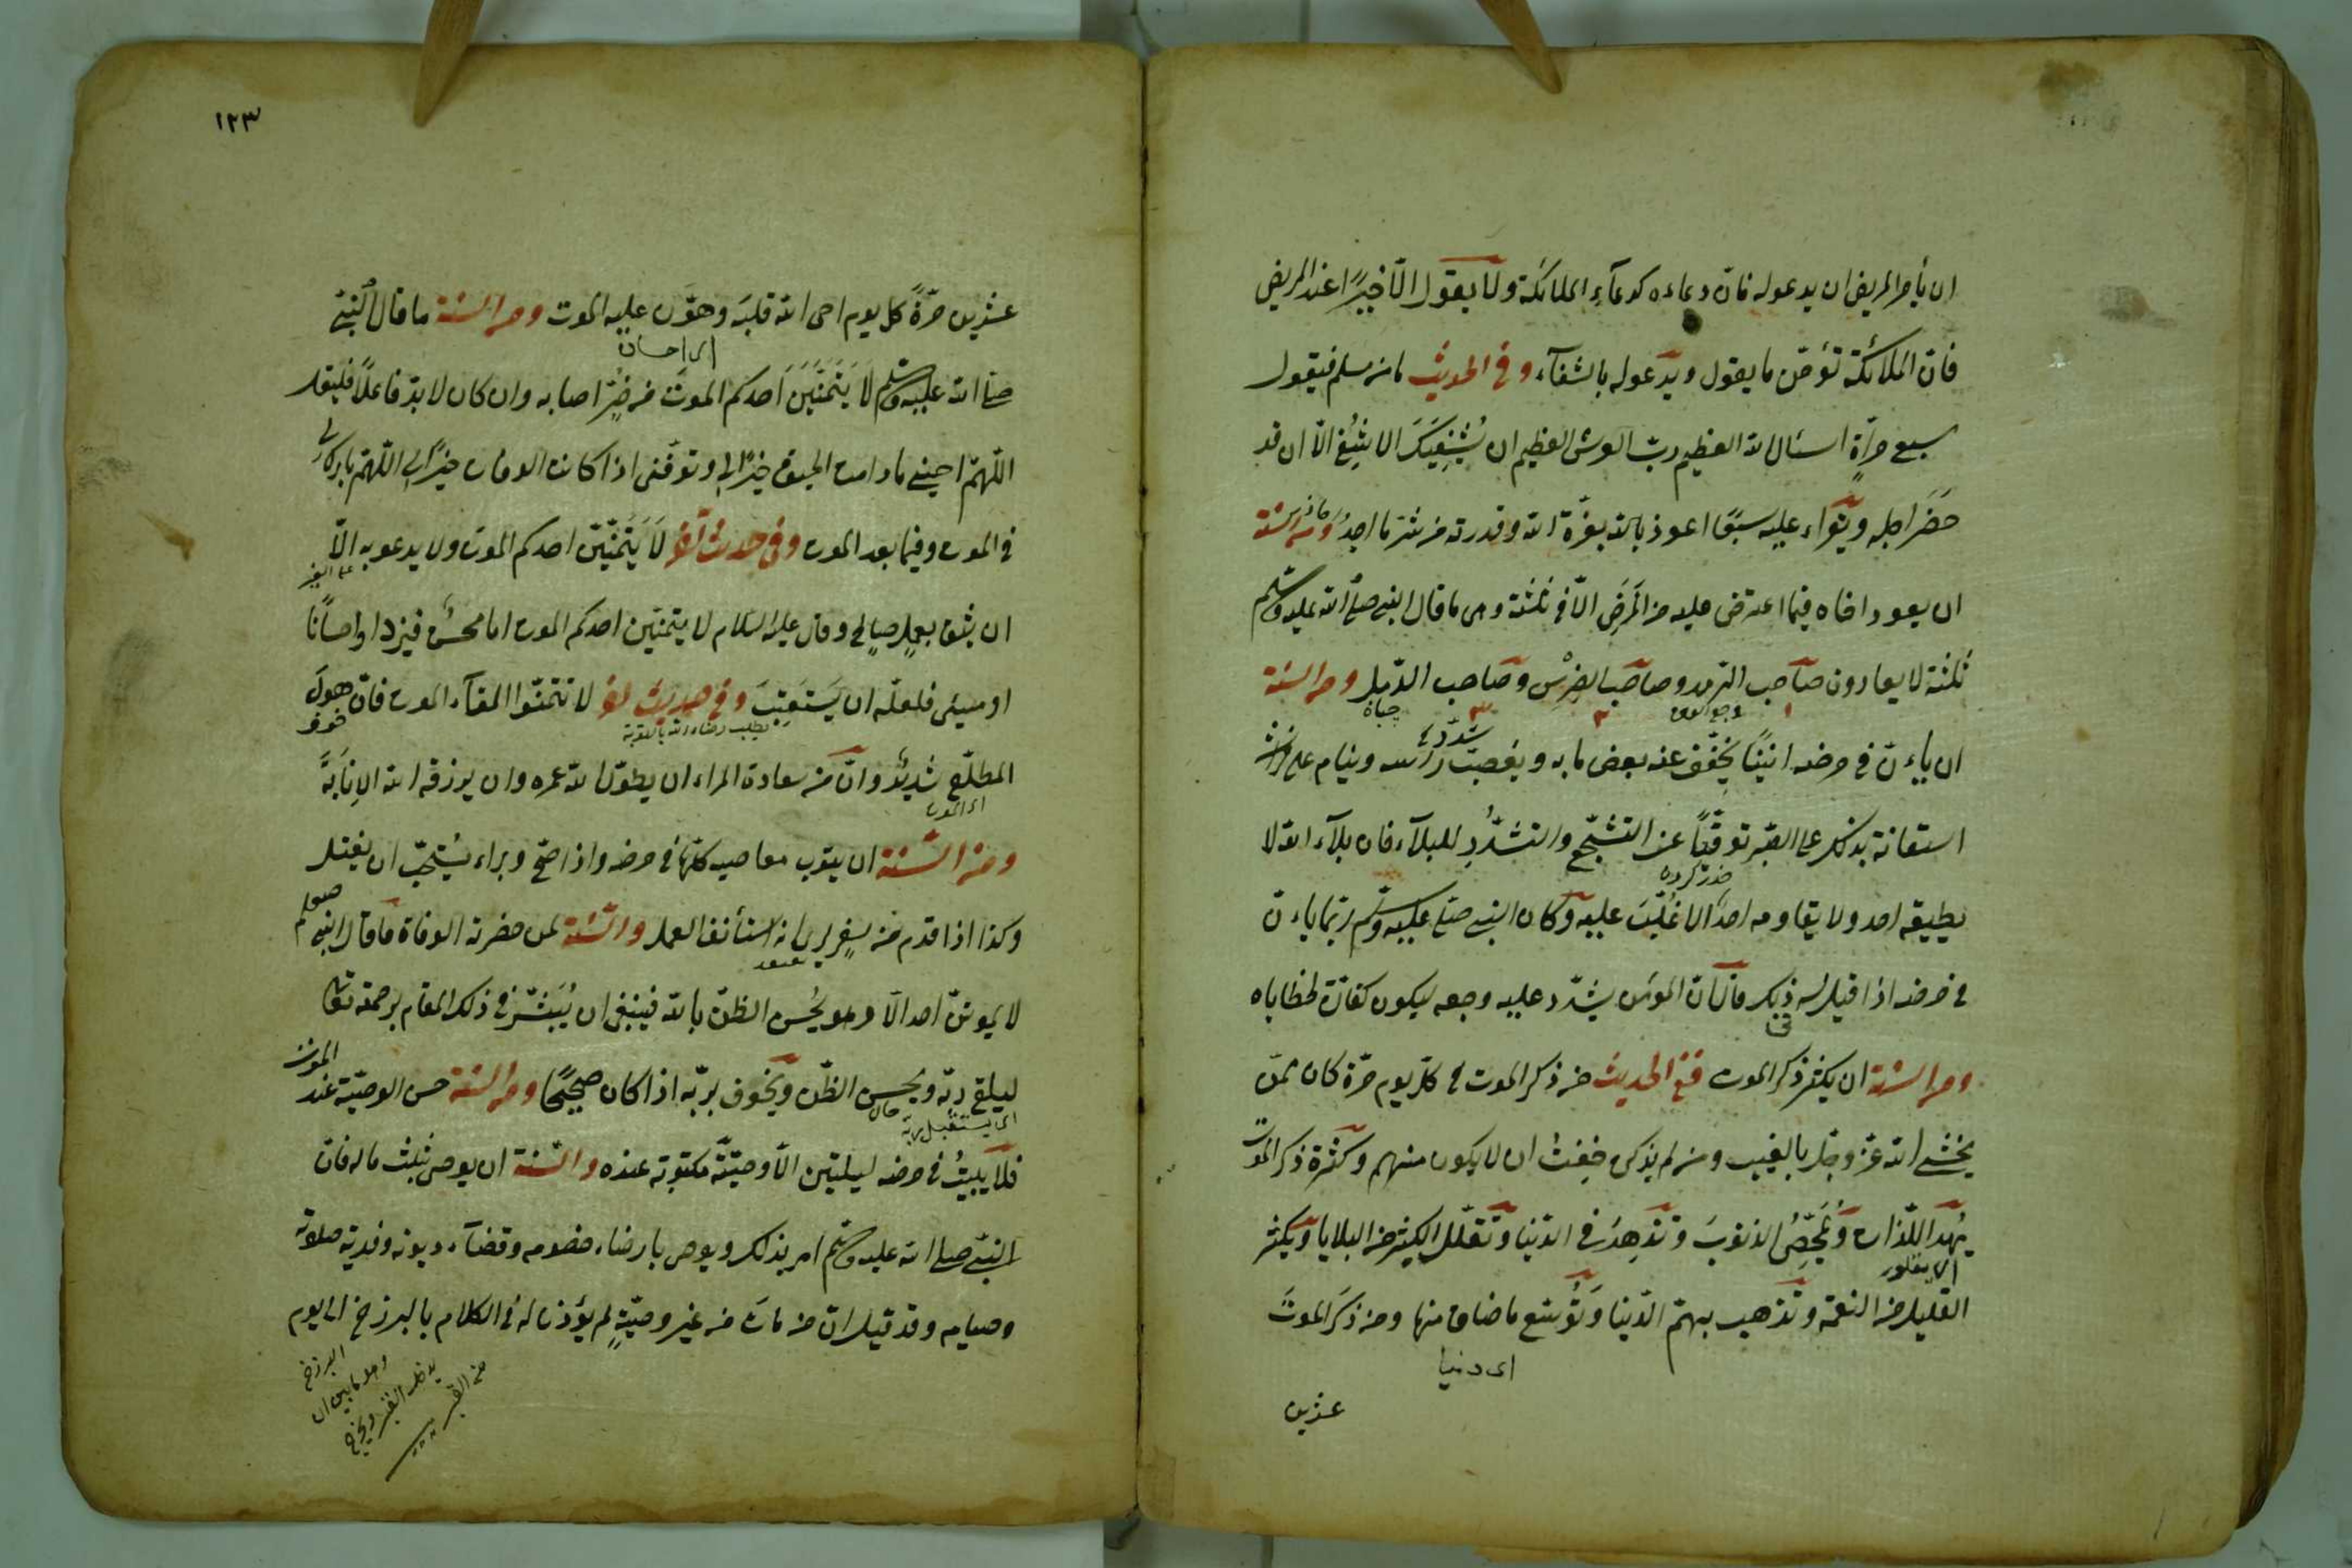 ان يأمر المريض ان يدعو له فان دعاءه كدعآء الملائكة ولا يقول الّا خيرًا عند المريض
فانّ الملائكة تؤمّن ما يقول ويدعو له بالشفآء وفى الحديث ما من مسلم فيقول
سبع مرّاةٍ اسئال الله العظيم ربّ العرش العظيم ان يُشْفِيَكَ الا شفى الّا ان قد
حَضَر اجله ويقراء عليه سبعًا اعوذ بالله بعزّة الله وقدرته من شرّ ما اجدُ ومن السنّة
ان يعود اخاه فيما اعترض عليه من المَرَض الّا فى ثلثة وهى ما قال النبى صلّى الله عليه وسلّم
ثلثة لا يعادون صاحب الرّمد وصاحب الضِرْس وصاحب الدّمل ومن السنّة
ان ياءنّ فى مرضه انينًا يخفّف عنه بعض ما به ويعصب رأسه وينام على فراشه
استعانة بذلك على الصبر توقّيًا عن التشجّع والتشدّدِ للبلآء فان بلآء الله لا
يطيقه احد ولا يقاومه احدٌ الا غُلّبَ عليه وكان النبى صلى عليه وسلّم ربّما ياءنّ
فى مرضه اذا قيل له ذلك قال انّ المؤمن يشدّد عليه وجعه ليكون كفّارة لخطاياه
ومن السنّة ان يكثر ذكر الموت ففى الحديث من ذكر الموت فى كلّ يوم مرّة كان ممّن
يخشى الله عزّ وجلّ بالغيب ومن لم يذكر خِفْتُ ان لا يكون منهم وكثرة ذكر الموت
يهدّ اللّذات وتمحّص الذنوبَ وتزهد فى الدّنيا وتقلّل الكثير من البلايا وتكثر
القليل من النعمة وتذهب بهمّ الدّنيا وتُوسّع ما ضاق منها ومن ذكر الموتَ
اى دنيا
عشرين
١٢٣
عشرين مرّةً كل يوم احى الله قلبَه وهوّن عليه الموت ومن السنّة ما قال النبىّ
صلى الله عليه وسلّم لا يَتمنّينَّ احدكم الموتَ من ضرٍّ اصابه وان كان لا بدّ فاعلًا فليقل
اللّهمّ احينى ما دامت الحيوة خيرًا لى وتوفّنى اذا كانت الوفات خيرًا لى اللّهمّ بارك لى
فى الموت وفيما بعد الموت وفى حديث آخر لا يَتمنّينّ احدكم الموت ولا يدعو به الّا
ان يثق بعملٍ صالحٍ وقال عليه السّلام لا يتمنّين احدكم الموت اما محسنٌ فيزداد احسانًا
او مسئى فلعلّه ان يَستَعتِبَ وفى حديث آخر لا تتمنّوا الموت فانّ هولَ
يطلب رضاء الله بالتوبة
المطلّع شديدٌ وانّ من سعادة المراء ان يطوّل الله عمره وان يرزقه الله الإنَابَةَ
ومن السّنّة ان يتوب معاصيه كلّها فى مرضه واذا صحّ وبراء يُستحبّ ان يغتسل
وكذا اذا قدم من سفرٍ استأنف العمل والسّنّة لمن حضرته الوفاة ما قال النبى صلعم
لا يموتنّ احد الّا وهو يُحسن الظنّ بالله فينبغى ان يُبَشّر فى ذلك المقام برحمة تعالى
ليلقى ربّه ويحسن الظنّ ويخوف بربّه اذا كان صحيحًا ومن السّنّة حسن الوصيّة عند الموت
اى يستقبل ربه
فلا يبيتُ فى مرضه ليلتين الّا ووصيّته مكتوبة عنده والسّنّة ان يوصى بثلث ماله فان
النبىّ صلى الله عليه وسلّم امر بذلك ويوصى بارضاء خصومه وقضآء ديونه وفدية صلوته
وصيامه وقد قيل انّ من مات من غير وصيّةٍ لم يؤذن له فى الكلام بالبرزخ الى يوم
البرزخ
وهو ما بين ان
يدخل القبر ويخرج
من القبر